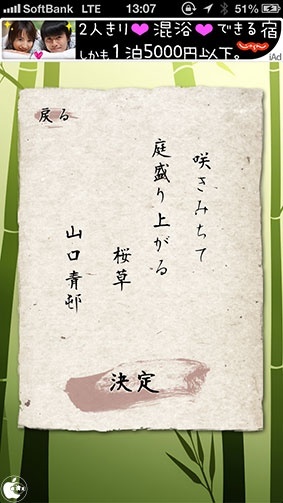 SoftBank LTE 13:07 51%
2人きり混浴できる宿
しかも1泊5000円以下。
iAd
戻る
咲きみちて
庭盛り上がる
桜草
山口青邨
決定